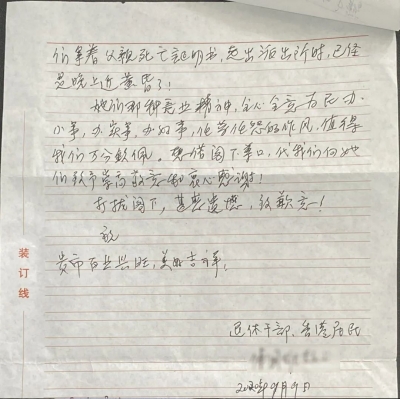 们拿着父亲死亡证明书，走出派出所时，已经
是晚上近黄昏了！
她们那种克业精神，全心全意为民办
小事，办实事，办好事，任劳任怨的作风，值得
我们万分钦佩。想借阁下掌口，代我们向她
们致予崇高敬意和衷心感谢！
打扰阁下，甚感遗憾，致歉意！
祝
贵市百业兴旺，美好吉祥。
装订线
退休干部、香港居民
2020年9月9日